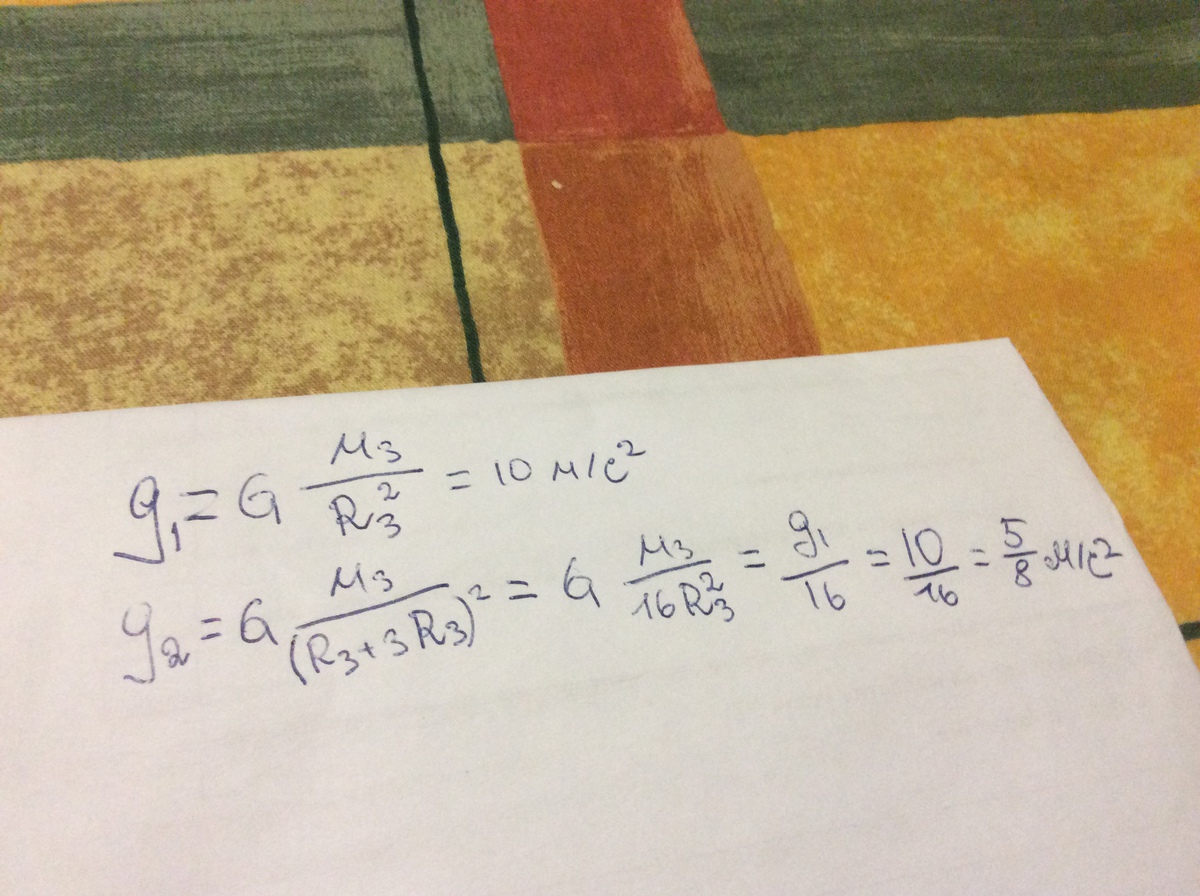 g₁ = G Mз/Rз² = 10 м/с²
g₂ = G Mз/(Rз+3Rз)² = G Mз/16Rз² = g₁/16 = 10/16 = 5/8 м/с²